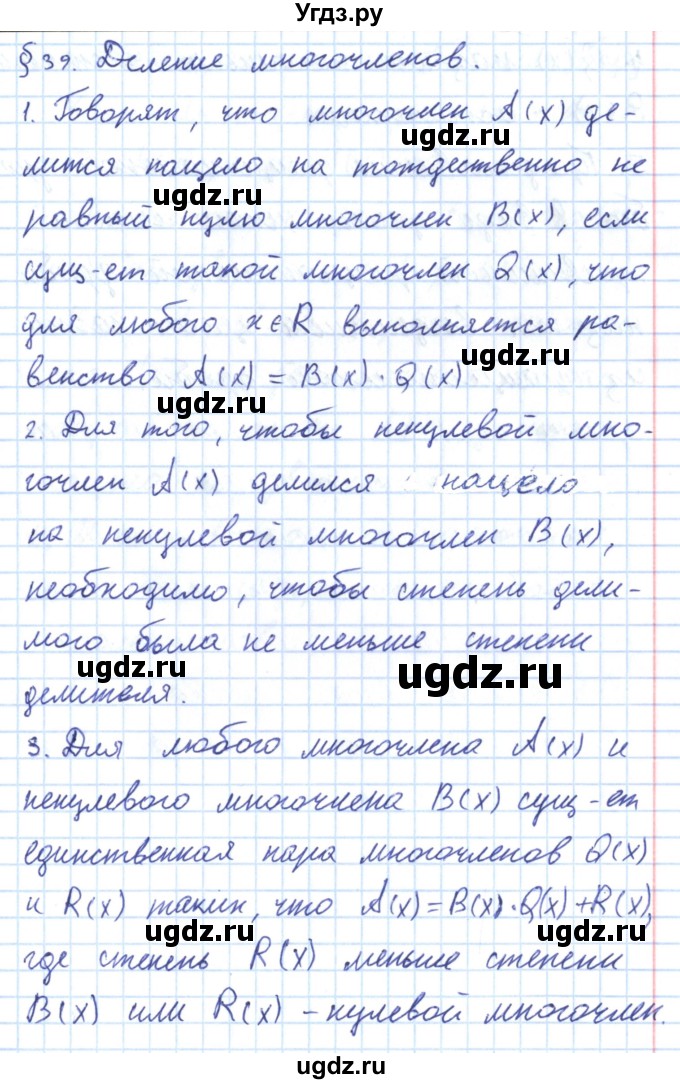 Угдз.ру
§ 39. Деление многочленов.
1. Говорят, что многочлен A(x) де-
ugdz.ru
лится нацело на тождественно не
ugdz.ru
равный нулю многочлен B(x), если
сущ-ет такой многочлен Q(x), что
для любого x∈R выполняется ра-
ugdz.ru
венство A(x) = B(x) · Q(x)
ugdz.ru
2. Для того, чтобы ненулевой мно-
гочлен A(x) делился нацело
на ненулевой многочлен B(x),
необходимо, чтобы степень дели-
мого была не меньше степени
ugdz.ru
ugdz.ru
делителя.
3. Для любого многочлена A(x) и
ненулевого многочлена B(x) сущ-ет
единственная пара многочленов Q(x)
и R(x) таких, что A(x)=B(x)·Q(x)+R(x),
ugdz.ru
ugdz.ru
где степень R(x) меньше степени
B(x) или R(x) – нулевой многочлен.
ugdz.ru